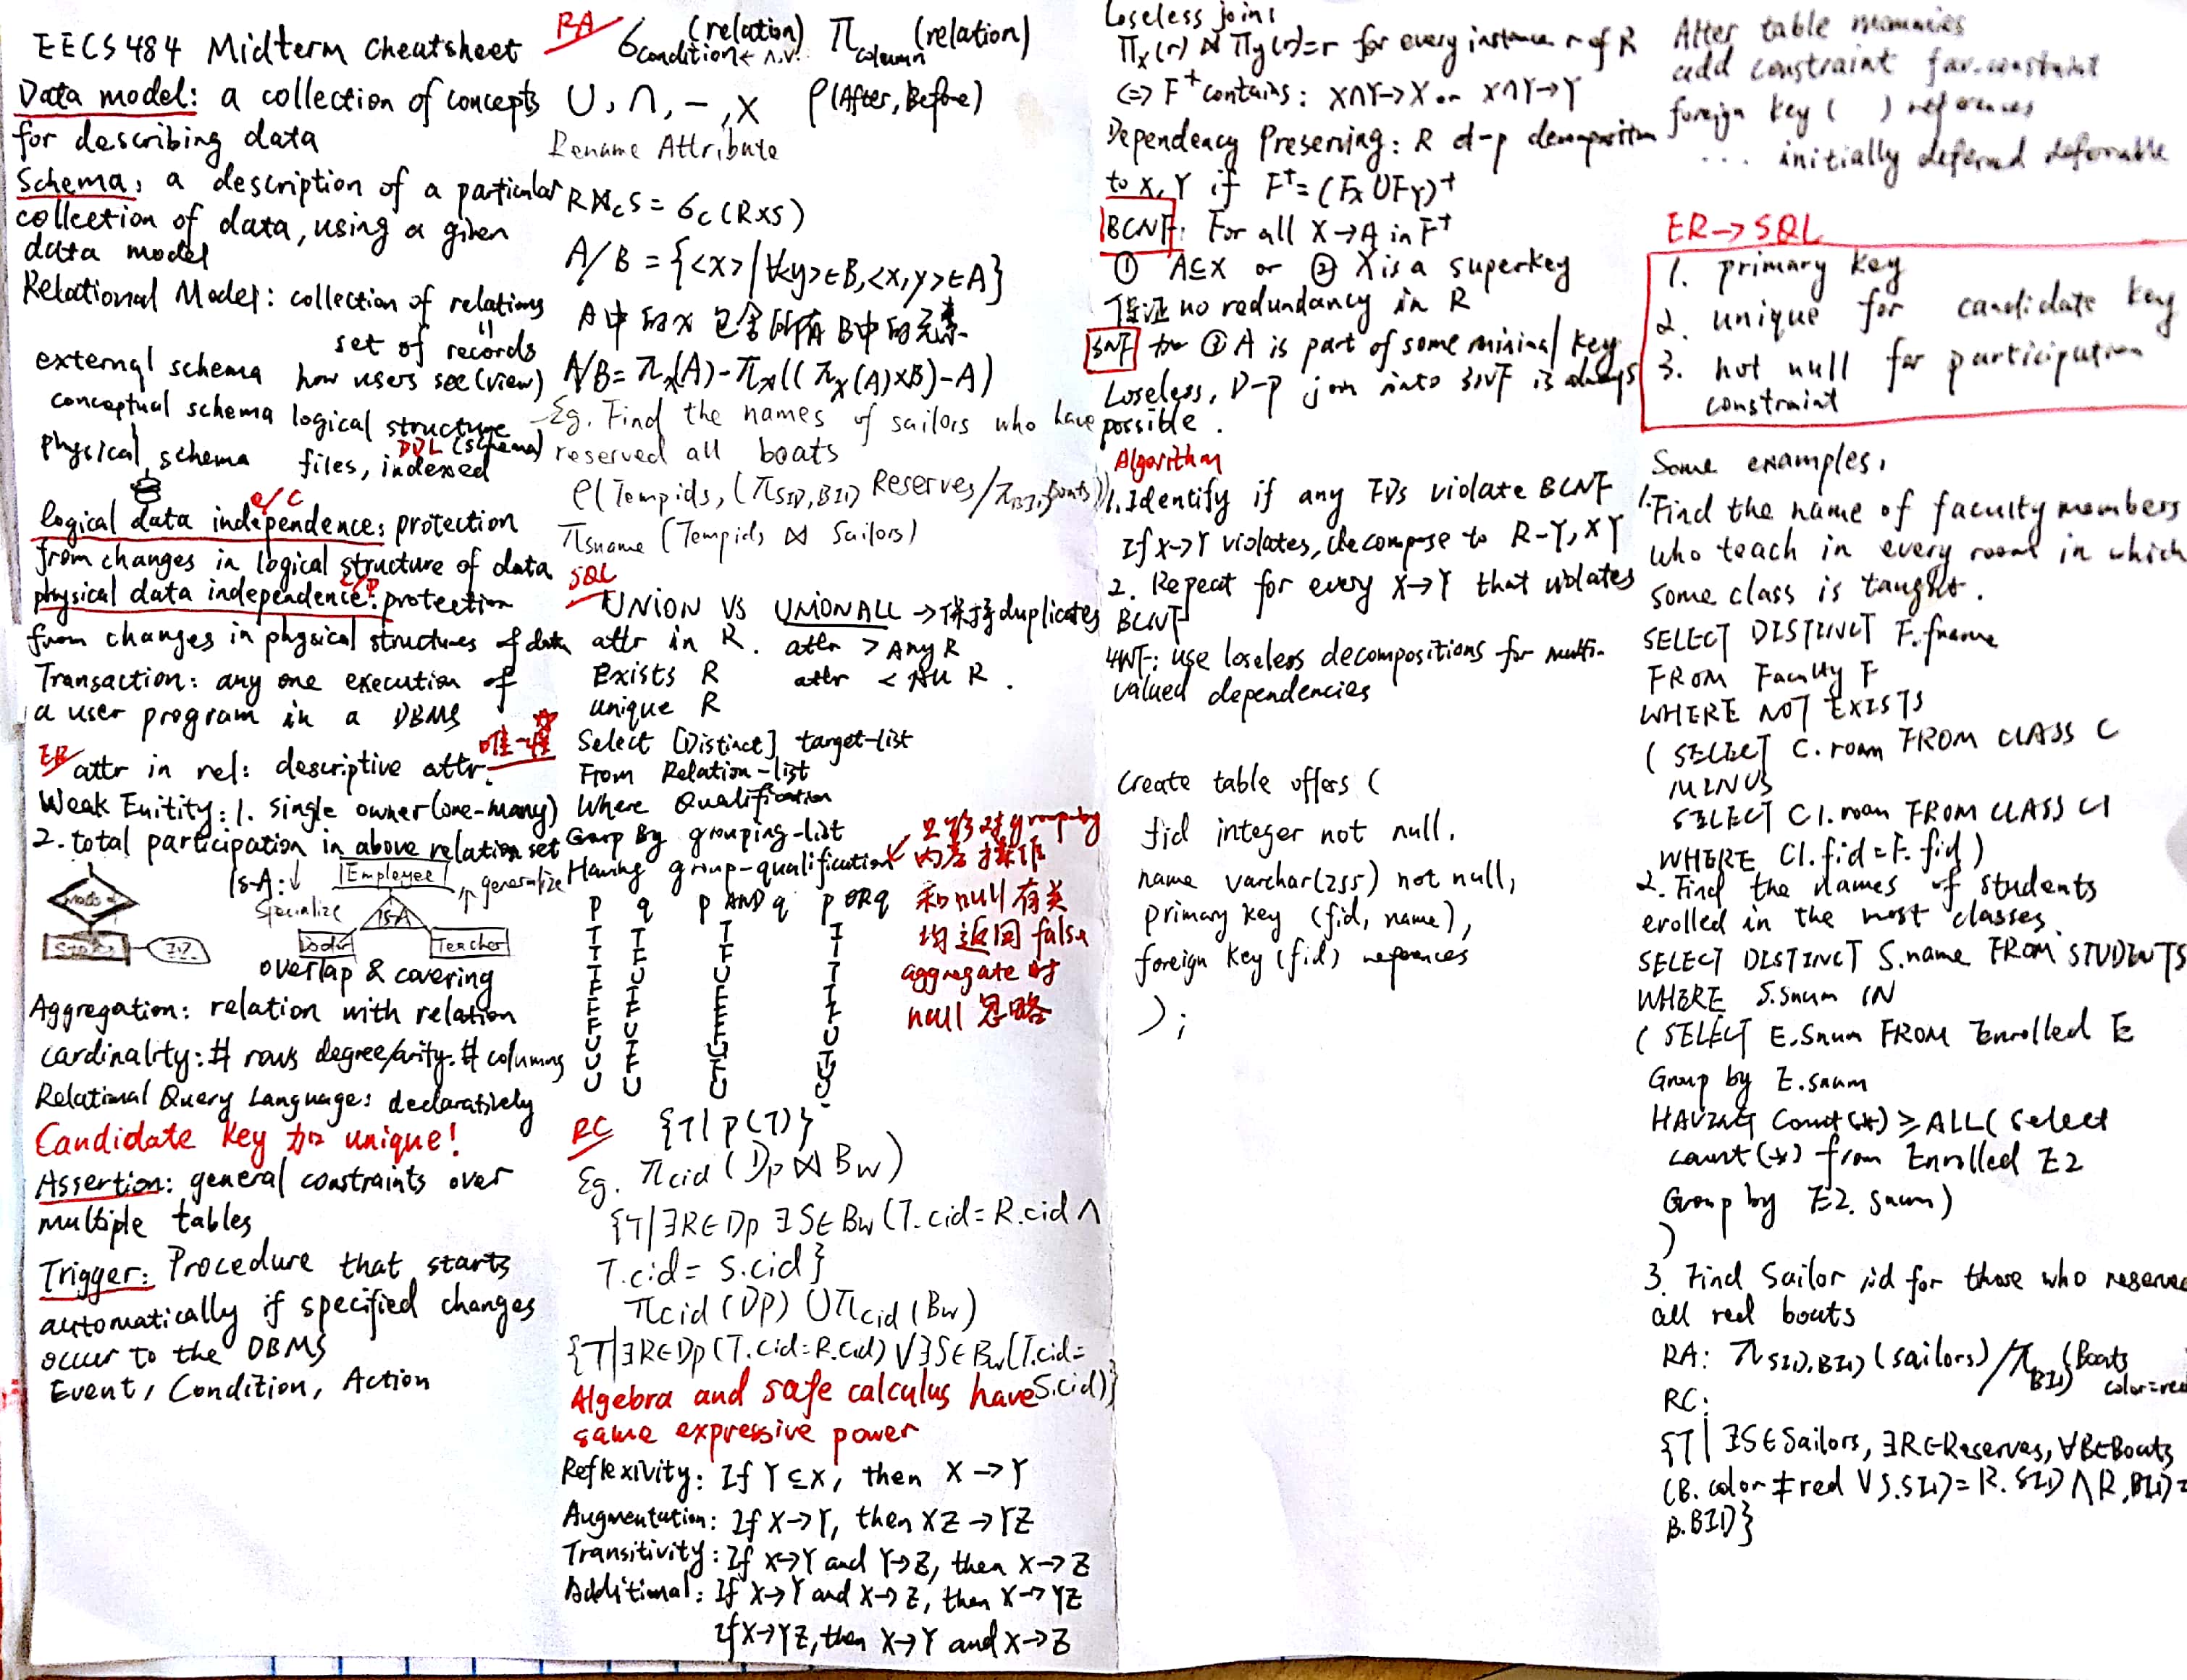 EECS 484 Midterm Cheatsheet
Data model: a collection of concepts
for describing data
Schema: a description of a particular
collection of data, using a given
data model
Relational Model: collection of relations
set of records
external schema how users see (view)
conceptual schema logical structure
DDL (schema)
physical schema files, indexed
e/C
logical data independence: protection
from changes in logical structure of data
physical data independence: protection
from changes in physical structures of data
Transaction: any one execution of
a user program in a DBMS
ER attr in rel: descriptive attr. 唯一性
Weak Enitity: 1. single owner (one-many)
2. total participation in above relation set
Is-A: ↓ Employee ↑ generalize
specialize Is-A
Teacher
overlap & covering
Aggregation: relation with relation
cardinality: # rows degree/arity: # columns
Relational Query Language: declaratively
Candidate key 加 unique!
Assertion: general constraints over
multiple tables
Trigger: Procedure that starts
automatically if specified changes
occur to the DBMS
Event, Condition, Action
RA σcondition←∧,∨.. (relation) πcolumn (relation)
∪, ∩, −, × ρ(After, Before)
Rename Attribute
R⋈cS = σc(R×S)
A/B = {<x>|∀<y>∈B, <x,y>∈A}
A中的x包含所有B中的元素
A/B = πx(A) − πx((πx(A)×B)−A)
Eg. Find the names of sailors who have
reserved all boats
ρ(Tempids, (πSID,BID Reserves/πBID Boats))
πsname (Tempids ⋈ Sailors)
SQL
UNION VS UNION ALL → 保持duplicates
attr in R. attr > Any R
Exists R attr < All R.
unique R
Select [Distinct] target-list
From Relation-list
Where Qualification
Group By grouping-list
Having group-qualification
只能对group by
内容操作
p q p AND q p OR q
和null有关
均返回false
aggregate时
null忽略
T T T T
T F F T
T U U T
F T F T
F F F F
F U F U
U T U T
U F F U
U U U U
RC {T|p(T)}
Eg. πcid (Dp ⋈ Bw)
{T|∃R∈Dp ∃S∈Bw(T.cid=R.cid ∧
T.cid = S.cid}
πcid (Dp) ∪πcid (Bw)
{T|∃R∈Dp(T.cid=R.cid) ∨∃S∈Bw(T.cid=
S.cid)}
Algebra and safe calculus have
same expressive power
Reflexivity: If Y⊆X, then X→Y
Augmentation: If X→Y, then XZ→YZ
Transitivity: If X→Y and Y→Z, then X→Z
Additional: If X→Y and X→Z, then X→YZ
If X→YZ, then X→Y and X→Z
Loseless join:
πx(r) ⋈ πy(r)=r for every instance r of R
<=> F⁺ contains: X∩Y→X or X∩Y→Y
Dependency Preserving: R d-p decomposition
to X, Y if F⁺ = (Fx∪FY)⁺
BCNF: For all X→A in F⁺
① A⊆X or ② X is a superkey
保证 no redundancy in R
3NF ③ A is part of some minimal key
Loseless, D-p join into 3NF is always
possible.
Algorithm
1. Identify if any FDs violate BCNF
If X→Y violates, decompose to R-Y, XY
2. Repeat for every X→Y that violates
BCNF
4NF: use loseless decompositions for multi-
valued dependencies
Create table offers (
fid integer not null,
name varchar(255) not null,
primary key (fid, name),
foreign key (fid) references
);
Alter table mummies
add constraint fav.constraint
foreign key ( ) references
... initially deferred deferrable
ER→SQL
1. primary key
2. unique for candidate key
3. not null for participation
constraint
Some examples,
1. Find the name of faculty members
who teach in every room in which
some class is taught.
SELECT DISTINCT F.fname
FROM Faculty F
WHERE NOT EXISTS
( SELECT C.room FROM CLASS C
MINUS
SELECT C1.room FROM CLASS C1
WHERE C1.fid=F.fid)
2. Find the names of students
erolled in the most classes.
SELECT DISTINCT S.name FROM STUDENTS
WHERE S.snum IN
( SELECT E.Snum FROM Enrolled E
Group by E.snum
HAVING Count(*) ≥ ALL( select
count(*) from Enrolled E2
Group by E2.snum)
)
3. Find sailor id for those who reserve
all red boats
RA: πSID,BID (sailors)/πBID (Boats color=red
RC:
{T| ∃S∈Sailors, ∃R∈Reserves, ∀B∈Boats
(B.color≠red ∨S.SID=R.SID ∧R.BID=
B.BID}